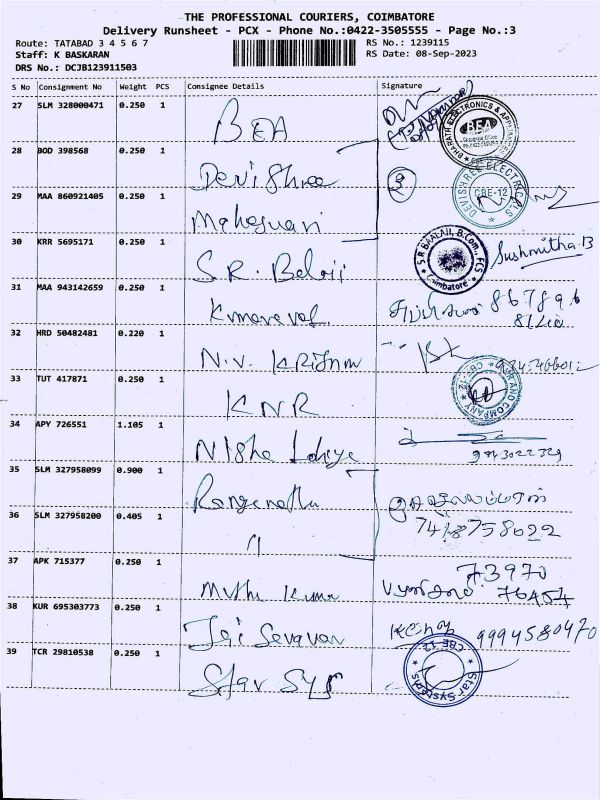 THE PROFESSIONAL COURIERS, COIMBATORE
Delivery Runsheet - PCX - Phone No.:0422-3505555 - Page No.:3
Route: TATABAD 3 4 5 6 7
RS No.: 1239115
Staff: K BASKARAN
RS Date: 08-Sep-2023
DRS No.: DCJB123911503
S No Consignment No Weight PCS Consignee Details Signature
27 SLM 328000471 0.250 1
BEA
BHARATH ELECTRONICS & APPLIANCES
BEA
28 BOD 398568 0.250 1
Devi Shree
2
DEVISHREE ELECTRICALS
CBE-12
29 MAA 860921405 0.250 1
Maheswari
30 KRR 5695171 0.250 1
S.R. Balaji
S.R BAALAJI, B.Com., FCS
Coimbatore
Sushmitha.B
31 MAA 943142659 0.250 1
Kumaravel
32 HRD 50482481 0.220 1
N.V. KRISHNN
33 TUT 417871 0.250 1
KNR
AND COMPANY
CBE-12
34 APY 726551 1.105 1
Nisha
9843022329
35 SLM 327958099 0.900 1
Ranganatha
2
36 SLM 327958200 0.405 1
"
7418758622
37 APK 715377 0.250 1
Muthu Kumar
73970
76454
38 KUR 695303773 0.250 1
Jai Saravan
9994580470
39 TCR 29810538 0.250 1
Star Sys
Star Systems
CBE 12